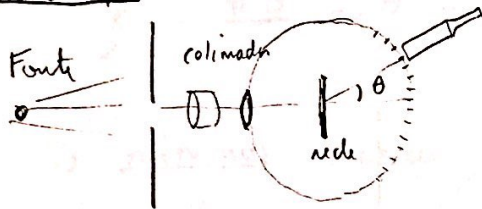 Fonte
colimador
θ
rede